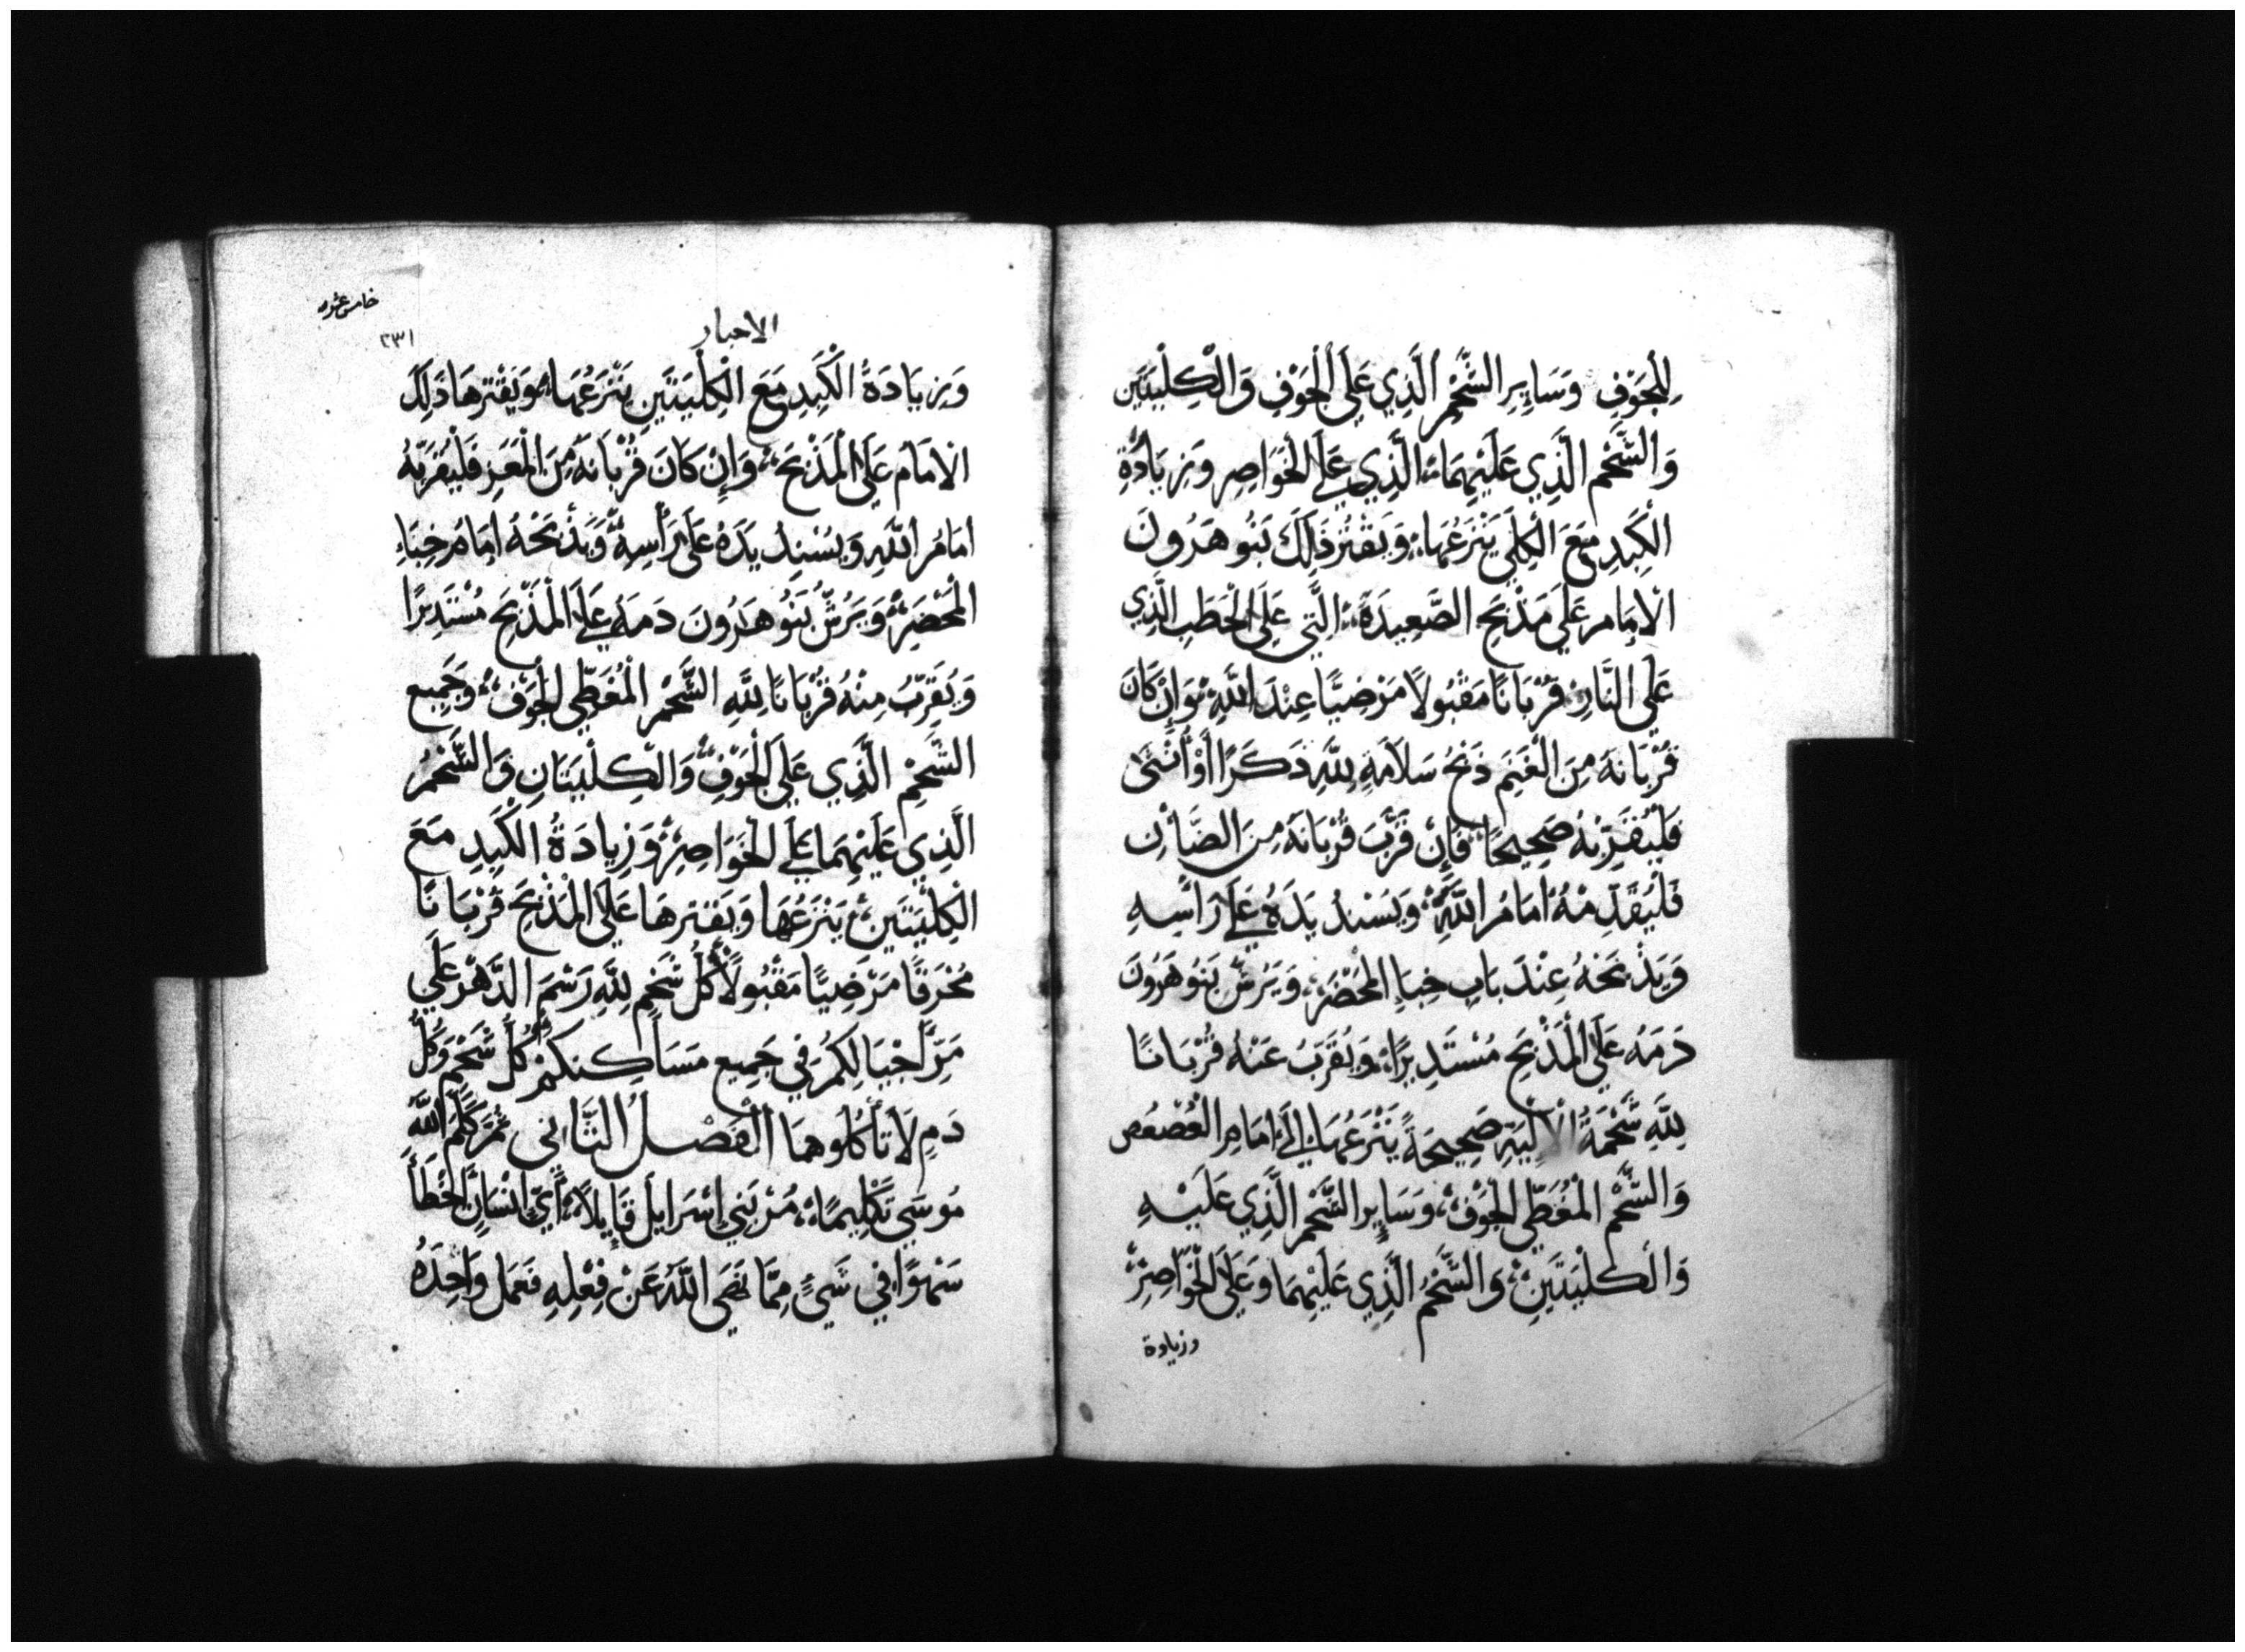 لِلجَوْفِ وَسَايِرِ الشَّحْمِ الَّذِي عَلَى الْجَوْفِ وَالْكِلْيَتَيْنِ
وَالشَّحْمِ الَّذِي عَلَيْهِمَا الَّذِي عَلَى الْخَوَاصِرِ وَزِيَادَةِ
الْكَبِدِ مَعَ الْكِلَى يَنْزَعُهَا وَيَقْتُرُ ذَلِكَ بَنُو هَرُونَ
الْإِمَامِ عَلَى مَذْبَحِ الصَّعِيدَةِ الَّتِي عَلَى الْحَطَبِ الَّذِي
عَلَى النَّارِ قُرْبَانًا مَقْبُولًا مَرْضِيًّا عِنْدَ اللَّهِ وَإِنْ كَانَ
قُرْبَانَهُ مِنَ الْغَنَمِ ذَبْحُ سَلَامَةٍ لِلَّهِ ذَكَرًا أَوْ أُنْثَى
فَلْيُقَرِّبْهُ صَحِيحًا فَإِنْ قَرَّبَ قُرْبَانَهُ مِنَ الضَّأْنِ
فَلْيُقَدِّمْهُ أَمَامُ اللَّهِ وَيَسْنِدُ يَدَهُ عَلَى رَأْسِهِ
وَيَذْبَحَهُ عِنْدَ بَابِ خِبَاءِ الْمَحْضَرِ وَيَرُشُّ بَنُو هَرُونَ
دَمَهُ عَلَى الْمَذْبَحِ مُسْتَدِيرًا وَيُقَرِّبُ عَنْهُ قُرْبَانًا
لِلَّهِ شَحْمَةُ الْإِلْيَةِ صَحِيحَةً يَنْزَعُهَا إِلَى أَمَامِ الْعُصْعُصِ
وَالشَّحْمِ الْمُغَطِّي الْجَوْفِ وَسَايِرِ الشَّحْمِ الَّذِي عَلَيْهِ
وَالْكِلْيَتَيْنِ وَالشَّحْمُ الَّذِي عَلَيْهِمَا وَعَلَى الْخَوَاصِرِ
وزيادة
خامس عشر
٢٣١
الاحبار
وَزِيَادَةُ الْكَبِدِ مَعَ الْكِلْيَتَيْنِ يَنْزَعُهَا وَيَقْتِرُهَا ذَلِكَ
الْإِمَامُ عَلَى الْمَذْبَحِ وَإِنْ كَانَ قُرْبَانَهُ مِنَ الْمَعَزِ فَلْيُقَرِّبْهُ
أَمَامُ اللَّهِ وَيُسْنِدُ يَدَهُ عَلَى رَأْسِهِ وَيَذْبَحْهُ أَمَامَ خِبَاءِ
الْمَحْضَرِ وَيَرُشُّ بَنُو هَرُونَ دَمَهُ عَلَى الْمَذْبَحِ مُسْتَدِيرًا
وَيُقَرِّبُ مِنْهُ قُرْبَانًا لِلَّهِ الشَّحْمِ الْمُغَطِّي الْجَوْفِ وَجَمِيع
الشَّحْمِ الَّذِي عَلَى الْجَوْفِ وَالْكِلْيَتَانِ وَالشَّحْمُ
الَّذِي عَلَيْهِمَا عَلَى الْخَوَاصِرِ وَزِيَادَةُ الْكَبِدِ مَعَ
الْكِلْيَتَيْنِ يَنْزَعُهَا وَيَقْتِرُهَا عَلَى الْمَذْبَحِ قُرْبَانًا
مُحْرَقًا مَرْضِيًّا مَقْبُولًا كُلُّ شَحْمٍ لِلَّهِ رَسْمَ الدَّهْرِ عَلَى
مَرِّ أَجْيَالِكُمْ فِي جَمِيعِ مَسَاكِنِكُمْ كُلُّ شَحْمٍ وَكُلُّ
دَمٍ لَا تَأْكُلُوهُمَا الْفَصْلُ الثَّانِي ثُمَّ كَلَّمَ اللَّهُ
مُوسَى تَكْلِيمًا مُرْ بَنِي إِسْرَايِلَ قَايِلًا أَيُّ إِنْسَانٍ أَخْطَأَ
سَهْوًا فِي شَيْءٍ مِمَّا نَهَى اللَّهُ عَنْ فِعْلِهِ فَعَمَلَ وَاحِدَةً